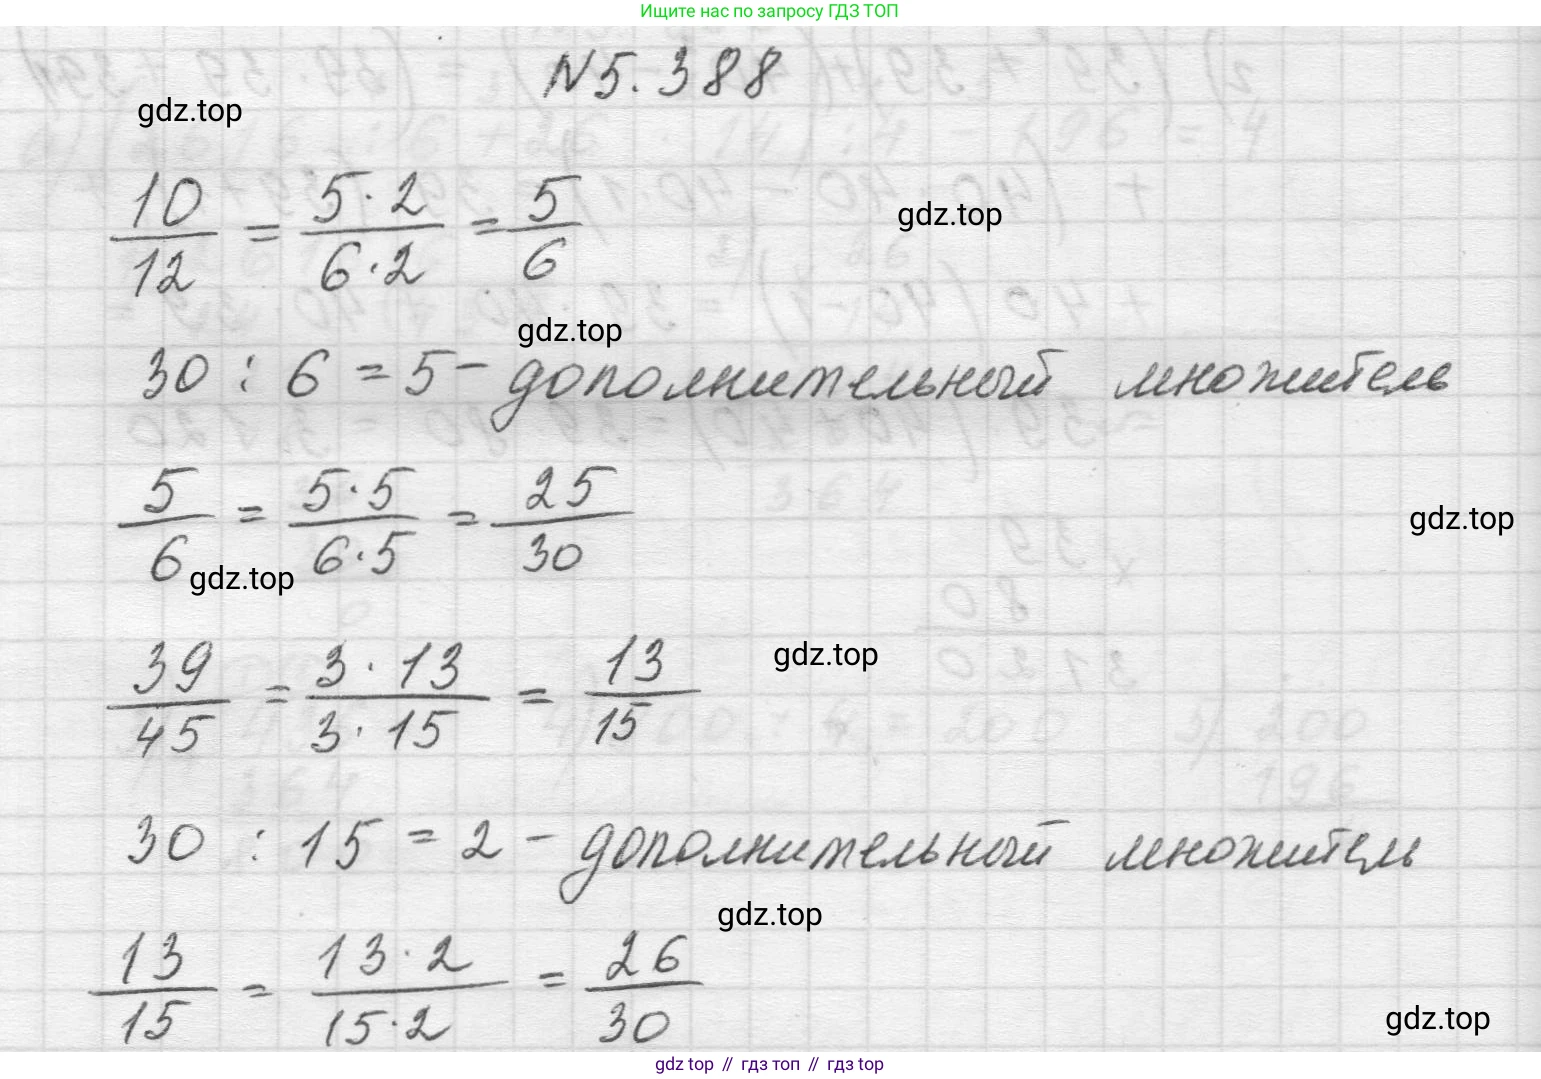 Ищите нас по запросу ГДЗ ТОП
N5.388
gdz.top
10/12 = 5·2/6·2 = 5/6
gdz.top
gdz.top
30 : 6 = 5 - дополнительный множитель
5/6 = 5·5/6·5 = 25/30
gdz.top
gdz.top
39/45 = 3·13/3·15 = 13/15
gdz.top
30 : 15 = 2 - дополнительный множитель
gdz.top
13/15 = 13·2/15·2 = 26/30
gdz.top
gdz top // гдз топ // гдз top